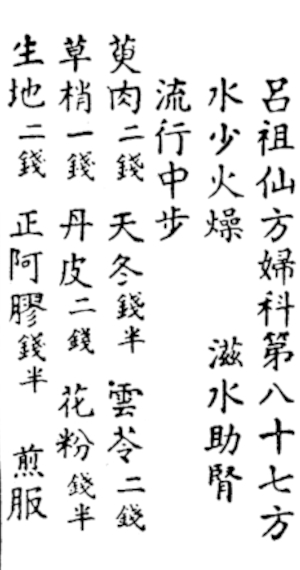 呂祖仙方婦科第八十七方
水少火燥 滋水助腎
流行中步
萸肉二錢 天冬錢半 雲苓二錢
草梢一錢 丹皮二錢 花粉錢半
生地二錢 正阿膠錢半 煎服